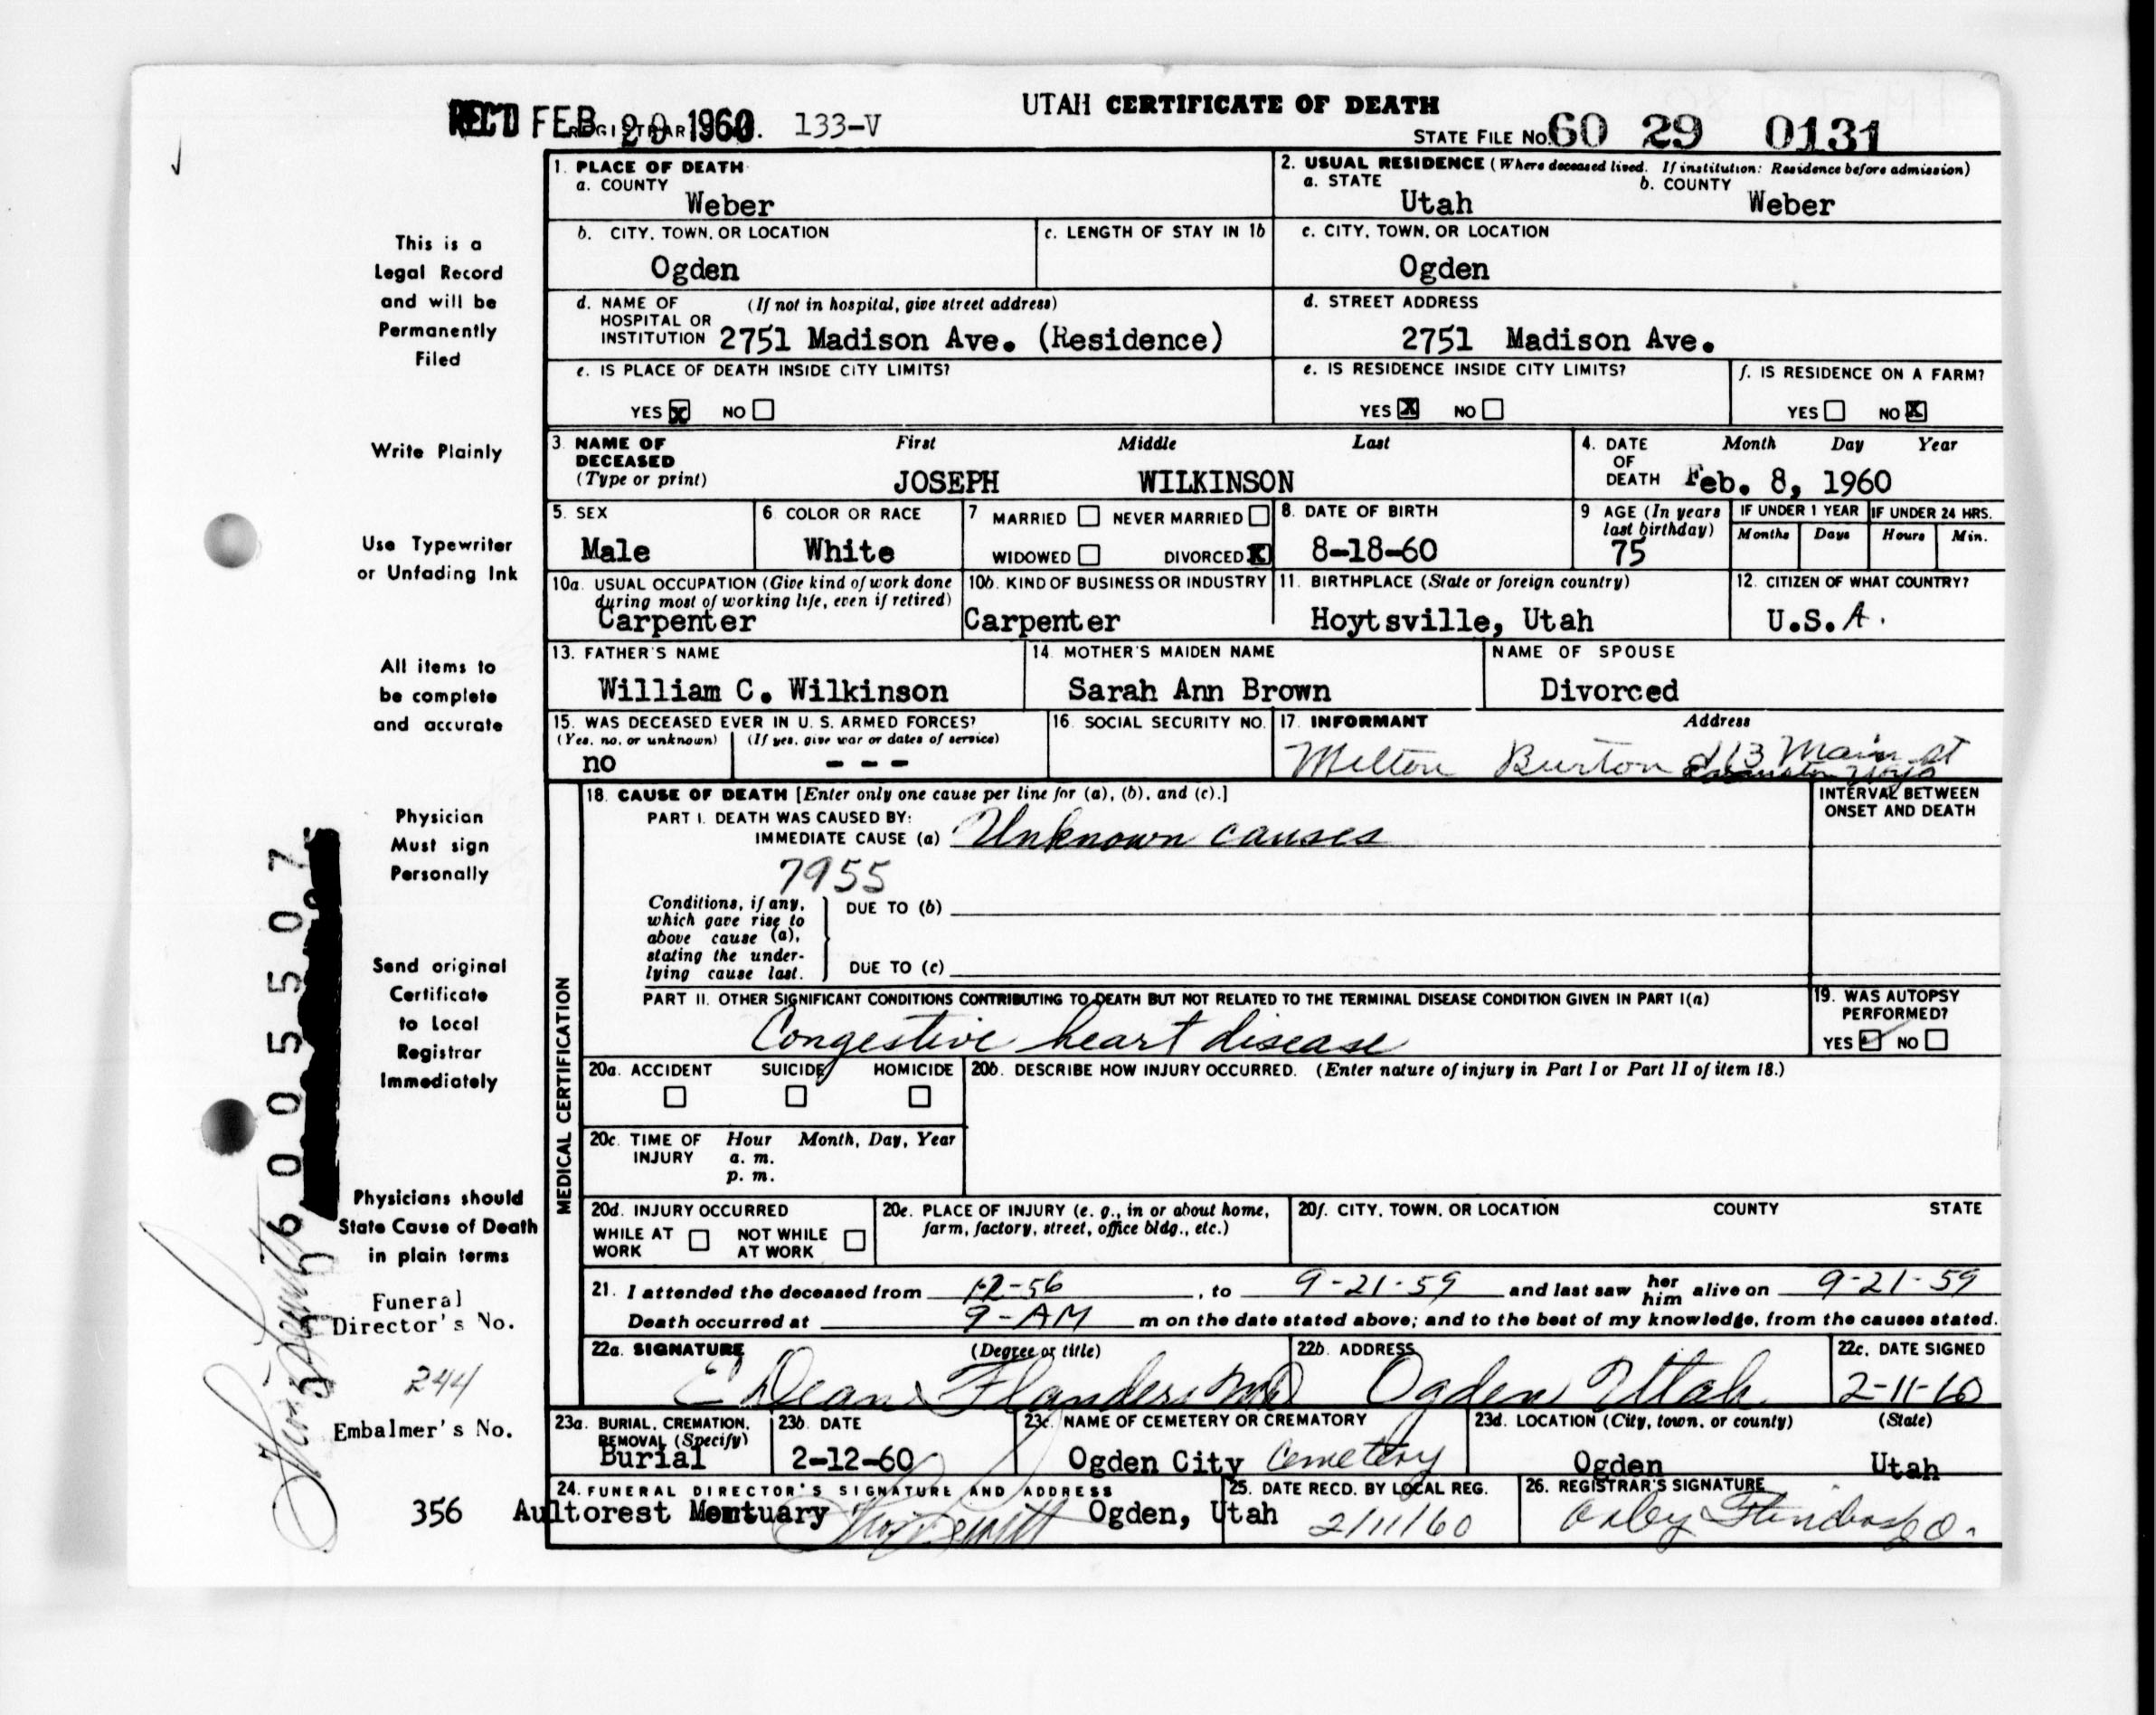 UTAH CERTIFICATE OF DEATH
REC'D FEB 29 1960. 133-V
STATE FILE NO. 60 29 0131
1. PLACE OF DEATH
a. COUNTY
Weber
2. USUAL RESIDENCE (Where deceased lived. If institution: Residence before admission)
a. STATE
Utah
b. COUNTY
Weber
b. CITY, TOWN, OR LOCATION
Ogden
c. LENGTH OF STAY IN 1b
c. CITY, TOWN, OR LOCATION
Ogden
d. NAME OF HOSPITAL OR INSTITUTION (If not in hospital, give street address)
2751 Madison Ave. (Residence)
d. STREET ADDRESS
2751 Madison Ave.
e. IS PLACE OF DEATH INSIDE CITY LIMITS?
YES X NO
e. IS RESIDENCE INSIDE CITY LIMITS?
YES X NO
f. IS RESIDENCE ON A FARM?
YES NO X
3. NAME OF DECEASED (Type or print)
First Middle Last
JOSEPH WILKINSON
4. DATE OF DEATH Month Day Year
Feb. 8, 1960
5. SEX
Male
6. COLOR OR RACE
White
7 MARRIED NEVER MARRIED
WIDOWED DIVORCED X
8. DATE OF BIRTH
8-18-60
9 AGE (In years last birthday)
75
IF UNDER 1 YEAR
Months Days
IF UNDER 24 HRS.
Hours Min.
10a. USUAL OCCUPATION (Give kind of work done during most of working life, even if retired)
Carpenter
10b. KIND OF BUSINESS OR INDUSTRY
Carpenter
11. BIRTHPLACE (State or foreign country)
Hoytsville, Utah
12. CITIZEN OF WHAT COUNTRY?
U.S.A.
13. FATHER'S NAME
William C. Wilkinson
14. MOTHER'S MAIDEN NAME
Sarah Ann Brown
NAME OF SPOUSE
Divorced
15. WAS DECEASED EVER IN U. S. ARMED FORCES?
(Yes, no, or unknown) (If yes, give war or dates of service)
no - - -
16. SOCIAL SECURITY NO.
17. INFORMANT Address
Milton Burton 13 Main St
MEDICAL CERTIFICATION
18. CAUSE OF DEATH [Enter only one cause per line for (a), (b), and (c).]
PART I. DEATH WAS CAUSED BY:
IMMEDIATE CAUSE (a) Unknown causes
7955
INTERVAL BETWEEN ONSET AND DEATH
Conditions, if any, which gave rise to above cause (a), stating the underlying cause last.
DUE TO (b)
DUE TO (c)
PART II. OTHER SIGNIFICANT CONDITIONS CONTRIBUTING TO DEATH BUT NOT RELATED TO THE TERMINAL DISEASE CONDITION GIVEN IN PART I(a)
Congestive heart disease
19. WAS AUTOPSY PERFORMED?
YES NO
20a. ACCIDENT SUICIDE HOMICIDE
20b. DESCRIBE HOW INJURY OCCURRED. (Enter nature of injury in Part I or Part II of item 18.)
20c. TIME OF INJURY Hour Month, Day, Year
a. m.
p. m.
20d. INJURY OCCURRED
WHILE AT WORK NOT WHILE AT WORK
20e. PLACE OF INJURY (e. g., in or about home, farm, factory, street, office bldg., etc.)
20f. CITY, TOWN, OR LOCATION COUNTY STATE
21. I attended the deceased from 12-56, to 9-21-59 and last saw her him alive on 9-21-59
Death occurred at 9-AM m on the date stated above; and to the best of my knowledge, from the causes stated.
22a. SIGNATURE (Degree or title)
E Dean Flanders MD
22b. ADDRESS
Ogden Utah
22c. DATE SIGNED
2-11-60
23a. BURIAL, CREMATION, REMOVAL (Specify)
Burial
23b. DATE
2-12-60
23c. NAME OF CEMETERY OR CREMATORY
Ogden City Cemetery
23d. LOCATION (City, town, or county) (State)
Ogden Utah
24. FUNERAL DIRECTOR'S SIGNATURE AND ADDRESS
Aultorest Mortuary Ogden, Utah
25. DATE RECD. BY LOCAL REG.
2/11/60
26. REGISTRAR'S SIGNATURE
This is a
Legal Record
and will be
Permanently
Filed
Write Plainly
Use Typewriter
or Unfading Ink
All items to
be complete
and accurate
Physician
Must sign
Personally
Send original
Certificate
to Local
Registrar
Immediately
Physicians should
State Cause of Death
in plain terms
Funeral
Director's No.
244
Embalmer's No.
356
6005507